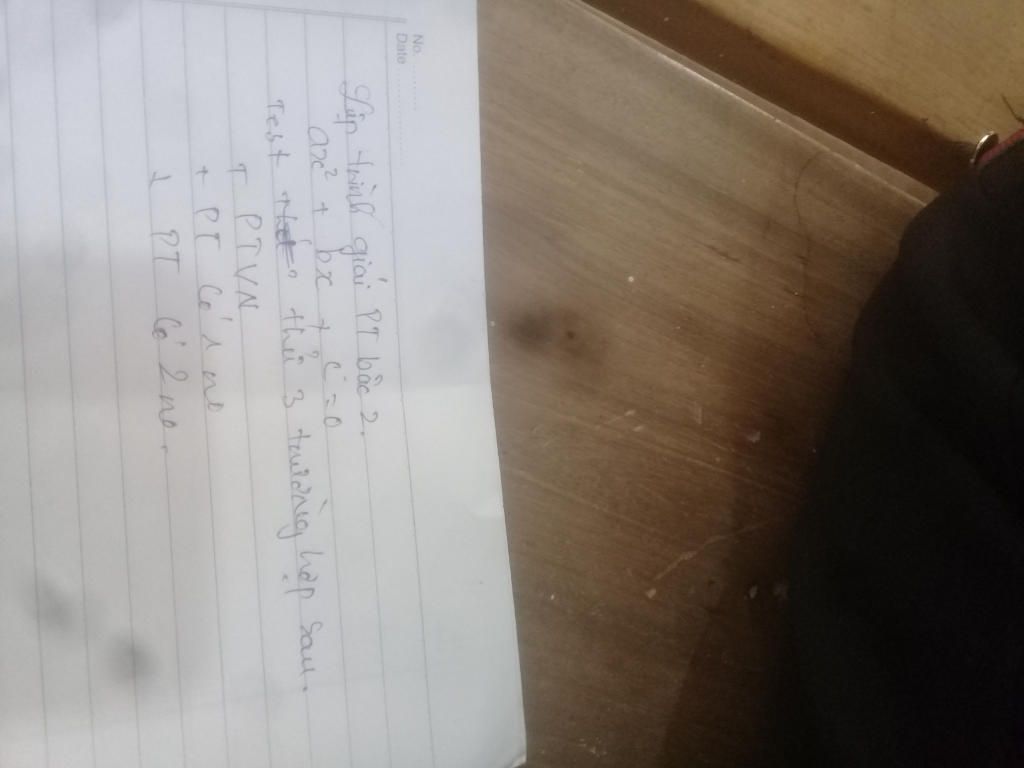 No. ..........
Date ....................
Lập trình giải PT bậc 2.
ax² + bx + c = 0
Test thử 3 trường hợp sau.
+ PTVN
+ PT có 1 no
+ PT có 2 no.